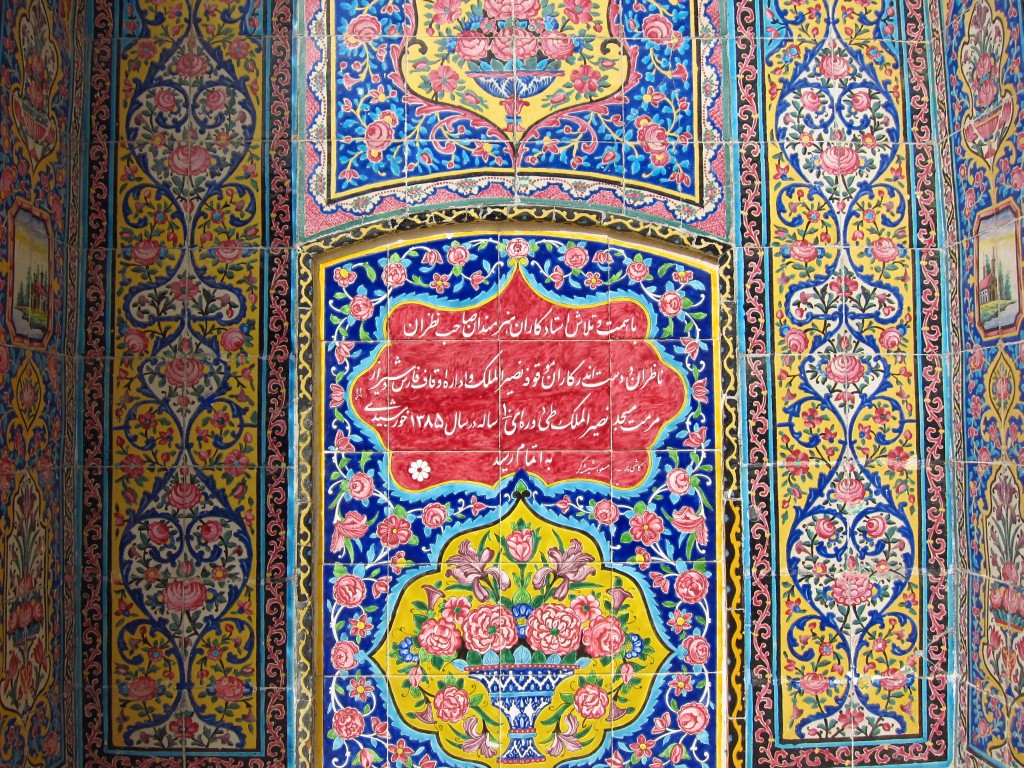 با همت و تلاش استادکاران هنرمندان صاحب نظران
ناظران و دست اندرکاران موقوفه نصیرالملک و اداره اوقاف فارس و شیراز
مرمت مسجد نصیرالملک طی دوره ی ۱۰ ساله در سال ۱۳۸۵ خورشیدی
به اتمام رسید